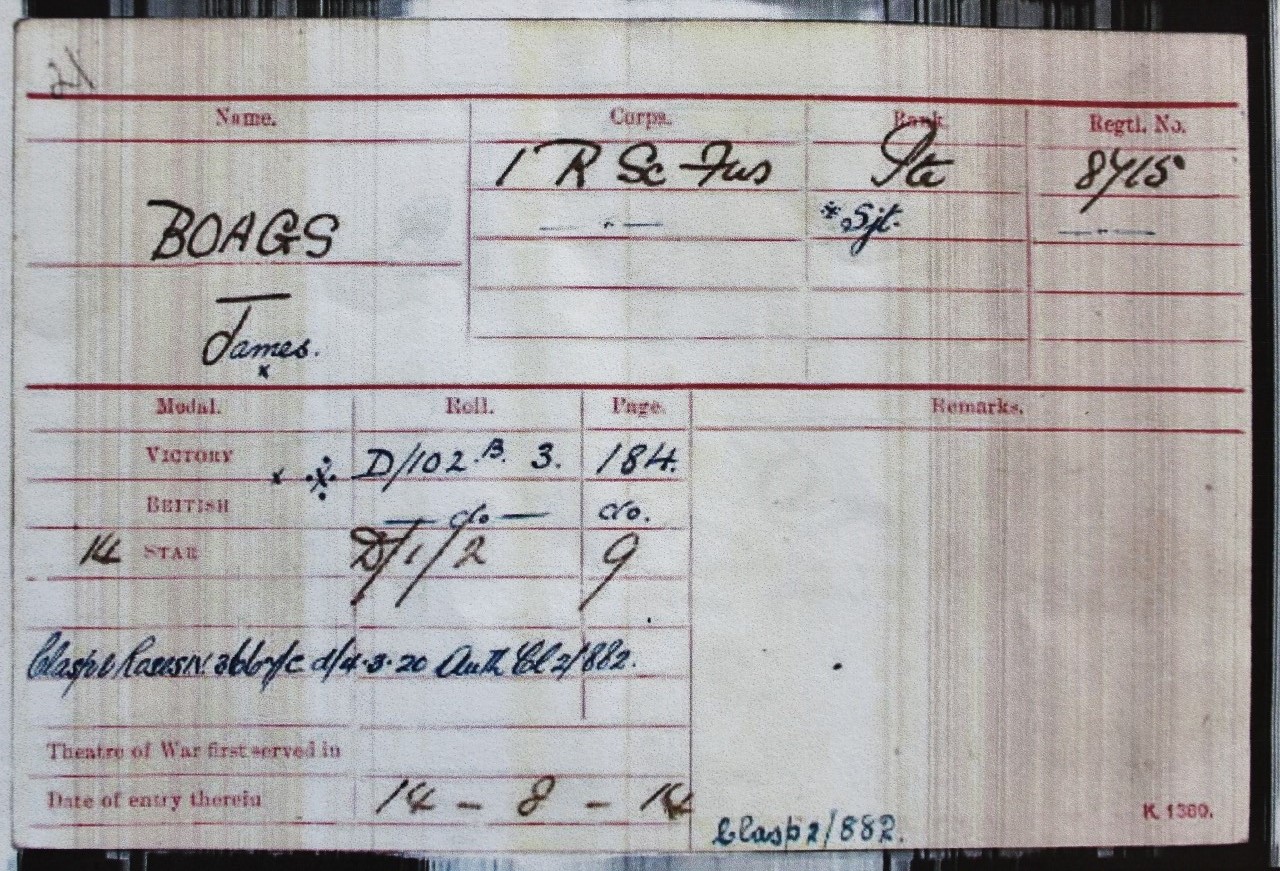 21
Name. Corps. Rank Regtl. No.
BOAGS 1 R Sc Fus Pte 8715
— " — * Sjt. — " —
James.
x
Medal. Roll. Page. Remarks.
VICTORY x ※ D/102 B. 3. 184.
BRITISH — do — do.
14 STAR D/1/2 9
Clasp & Roses d/4.3.20 Auth Cl 2/882.
Theatre of War first served in
Date of entry therein 14 - 8 - 14
Clasp 2/882.
K. 1380.